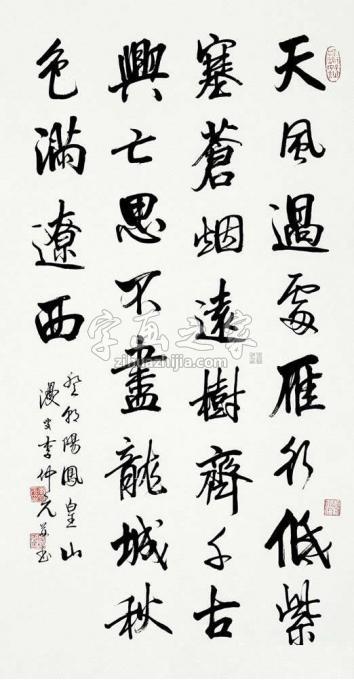 天風過處雁行低紫
塞蒼烟遠樹齊千古
興亡思不盡龍城秋
色滿遼西
登朝陽鳳皇山
漫叟李仲元并書
字画之家
zihuazhijia.com